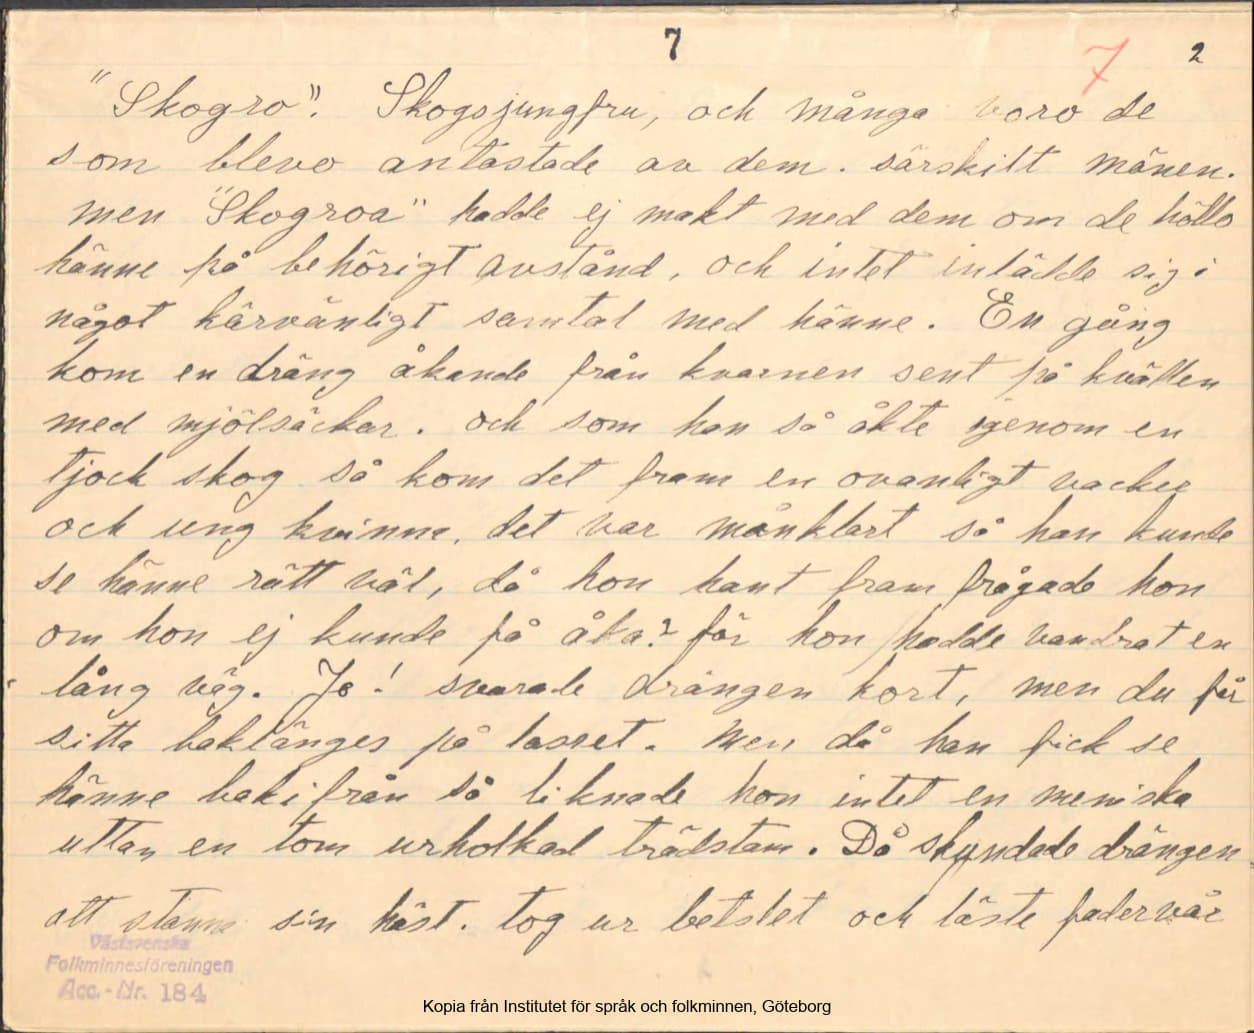 7
7 2
"Skogro". Skogsjungfru, och många voro de
som blevo antastade av dem. särskilt mänen.
men "Skogroa" hadde ej makt med dem om de höllo
hänne på behörigt avstånd, och intet inlädde sig i
något kärvänligt samtal med hänne. En gång
kom en dräng åkande från kvarnen sent på kvällen
med mjölsäckar. och som han så åkte igenom en
tjock skog så kom det fram en ovanligt vacker
och ung kvinna. det var månklart så han kunde
se hänne rätt väl, då hon hant fram frågade hon
om hon ej kunde få åka? för hon hadde vandrat en
lång väg. Ja! svarade drängen kort, men du får
sitta baklänges på lasset. Men då han fick se
hänne bakifrån så liknade hon intet en meniska
uttan en tom urholkad trädstam. Då skyndade drängen
att stanna sin häst. tog ur betslet och läste fadervår
Västsvenska
Folkminnesföreningen
Acc.-Nr. 184
Kopia från Institutet för språk och folkminnen, Göteborg